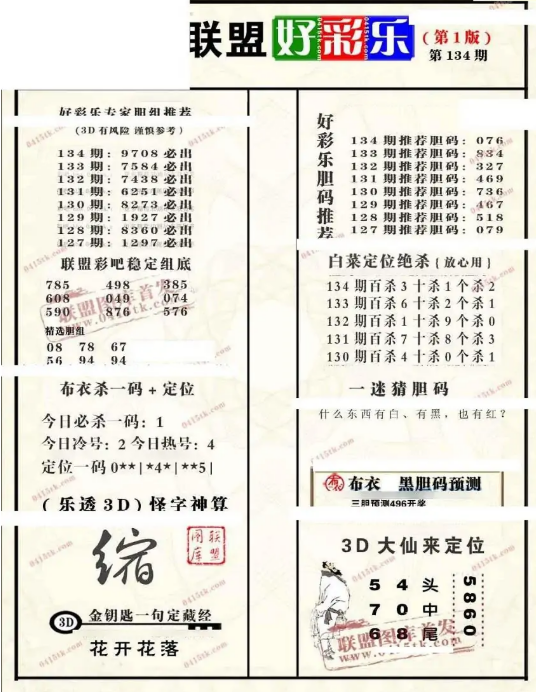 联盟 好彩乐
(第1版)
第134期
好彩乐专家胆组推荐
(3D有风险 谨慎参考)
134期: 9708 必出
133期: 7584 必出
132期: 7438 必出
131期: 6251 必出
130期: 8273 必出
129期: 1927 必出
128期: 8360 必出
127期: 1297 必出
联盟彩吧稳定组底
785 498 385
608 049 074
590 876 576
精选胆组
08 78 67
56 94 94
布衣杀一码+定位
今日必杀一码: 1
今日冷号: 2 今日热号: 4
定位一码 0**|*4*|**5|
(乐透3D) 怪字神算
缩
联盟图库
3D
金钥匙一句定藏经
花开花落
好彩乐胆码推荐
134期推荐胆码: 076
133期推荐胆码: 834
132期推荐胆码: 327
131期推荐胆码: 469
130期推荐胆码: 736
129期推荐胆码: 467
128期推荐胆码: 518
127期推荐胆码: 079
白菜定位绝杀{放心用}
134期百杀3十杀1个杀2
133期百杀6十杀2个杀1
132期百杀1十杀9个杀0
131期百杀7十杀8个杀3
130期百杀4十杀0个杀1
一迷猜胆码
什么东西有白、有黑，也有红?
布衣 黑胆码预测
三胆预测496开奖
3D大仙来定位
5 4 头
7 0 中
6 8 尾
5860
联盟图库首发
www.0415tk.com